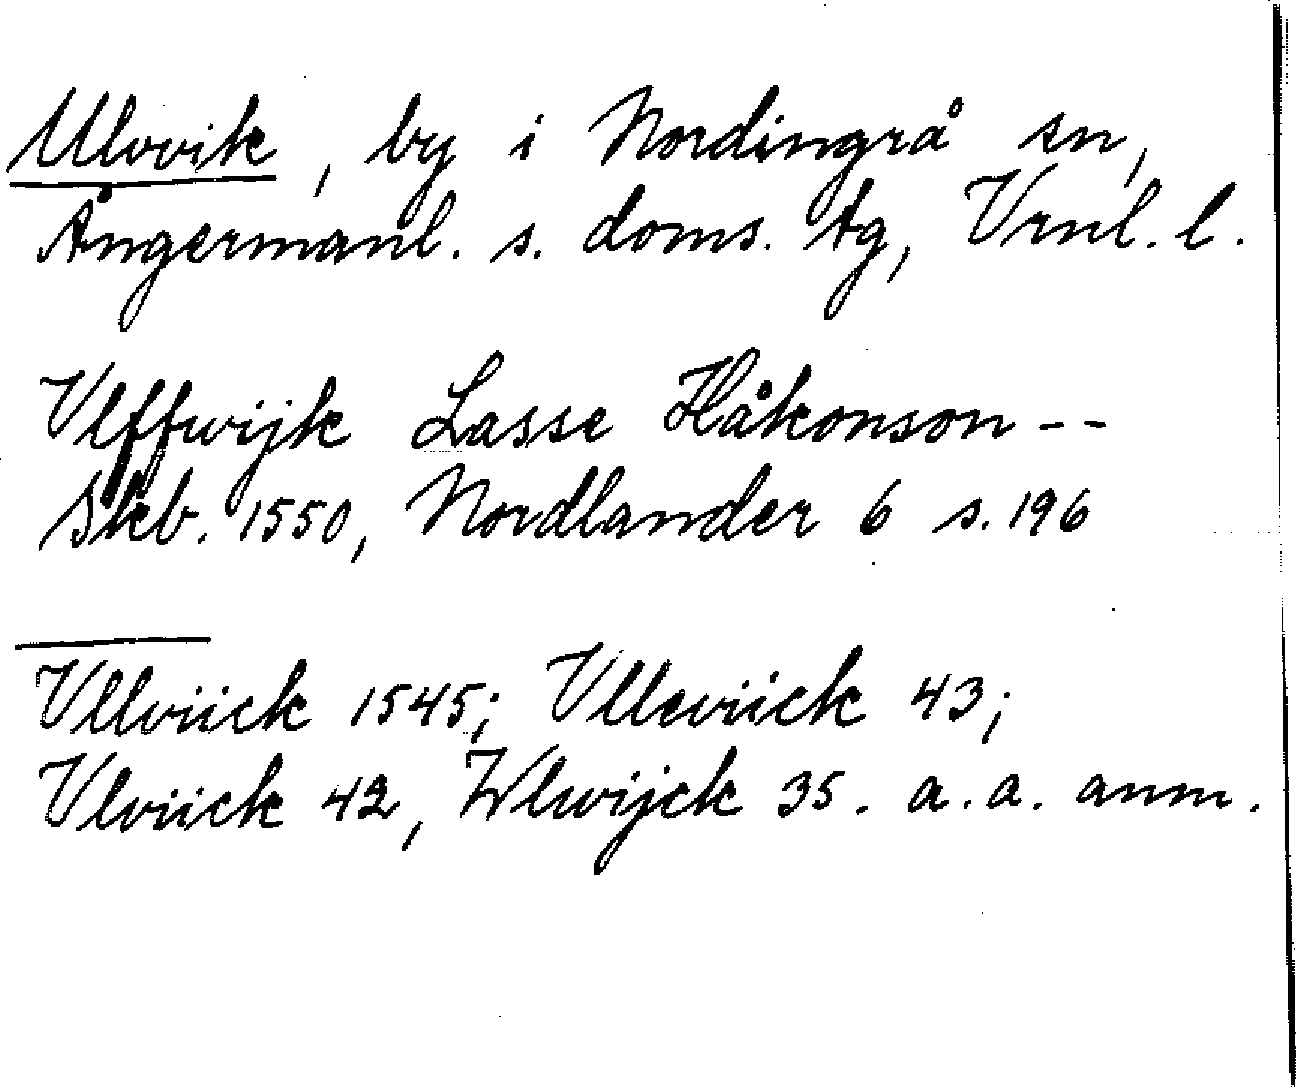 Ulvvik, by i Nordingrå sn,
Ångermanl. s. doms. tg, Vrnl. l.
Vlffwijk Lasse Håkonson --
Skb. 1550, Nordlander 6 s. 196
Vllviick 1545; Vlleviick 43;
Vlviick 42, Wlwijck 35. a.a. anm.